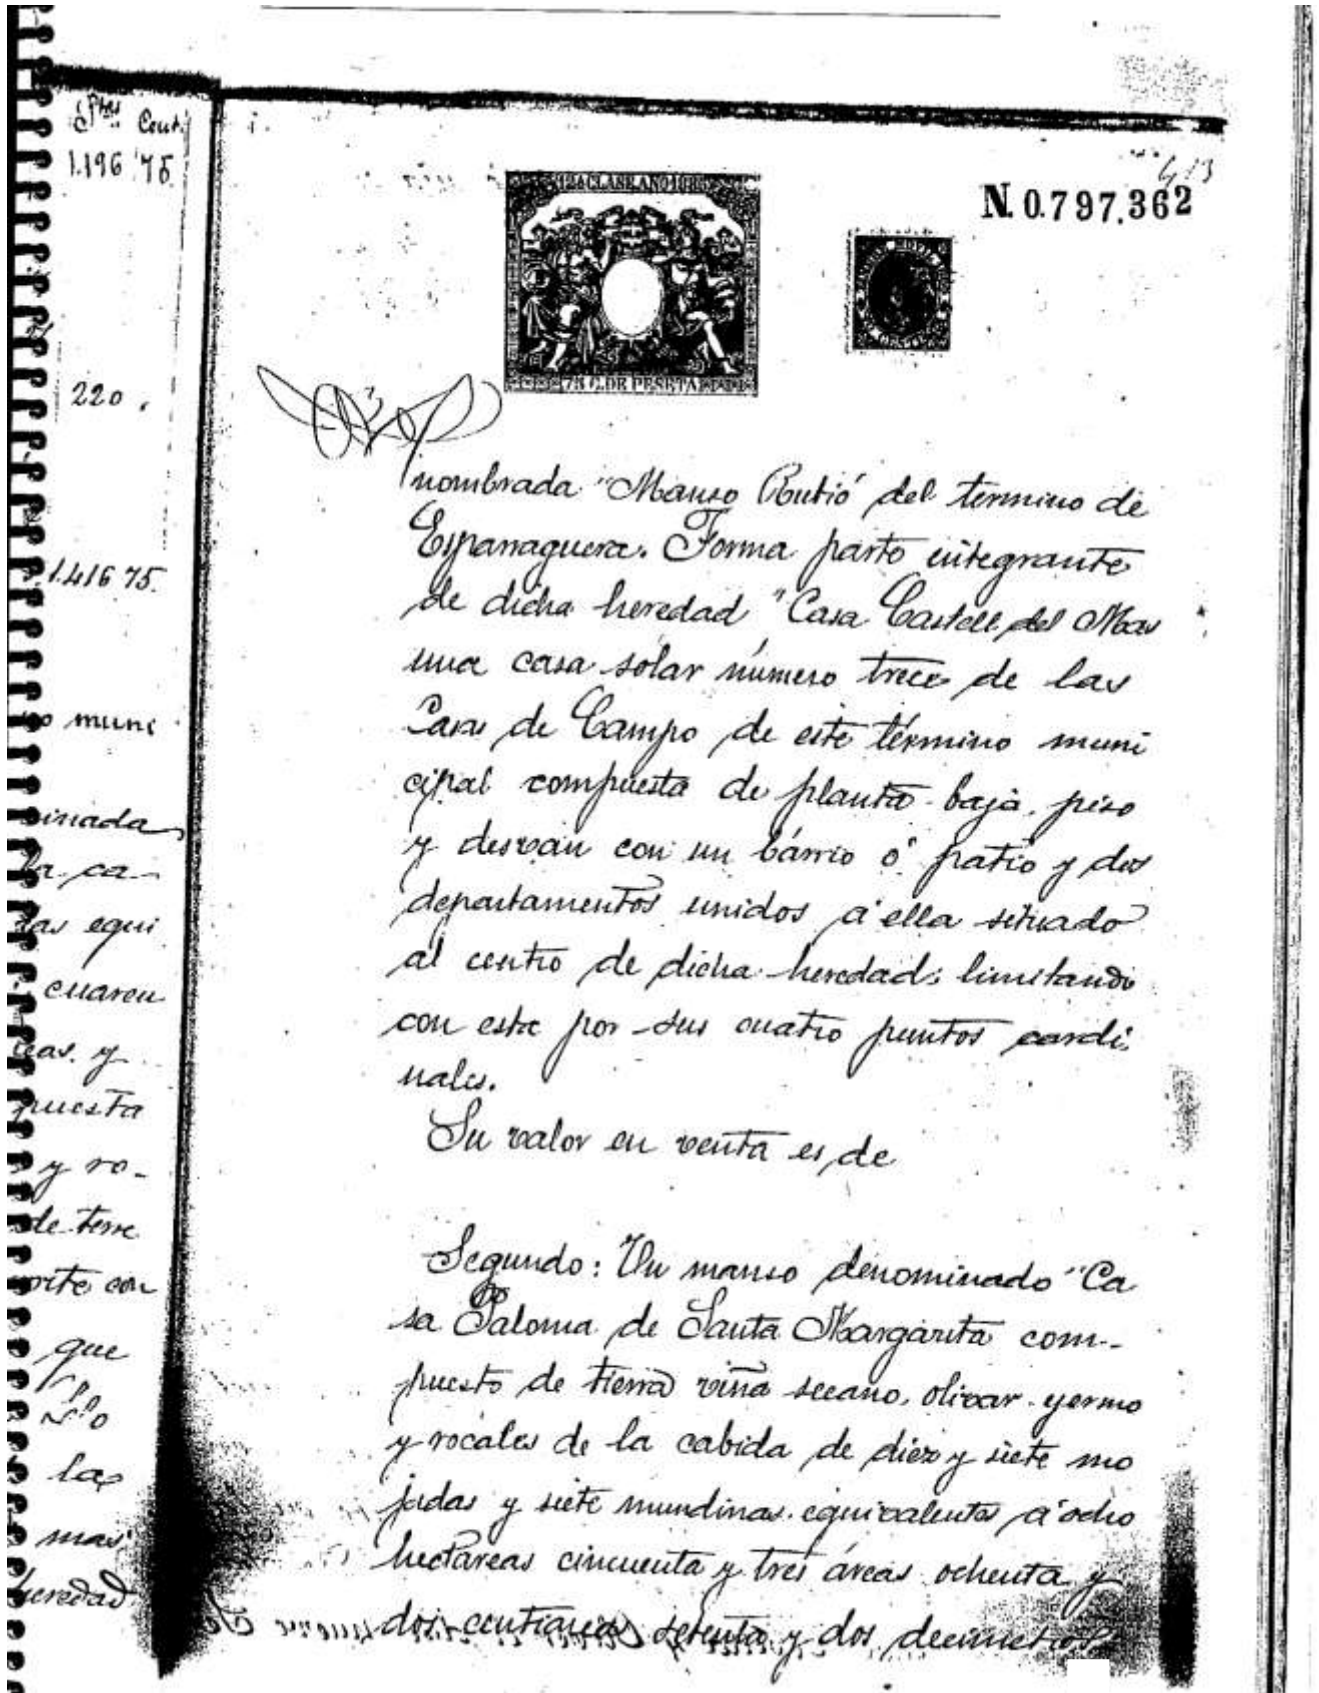 Ptas Cent.
1.196 75
220.
1.416 75.
muni
inada
la ca-
das equi
cuaren
eas. y
puesta
y ro-
de terre
que
la
mas
heredad
413
N. 0.797.362
12ª CLASE. AÑO 188
75 C. DE PESETA
nombrada "Manso Rubió" del termino de
Esparraguera. Forma parte integrante
de dicha heredad "Casa Castell del Mas
una casa solar número trece de las
Casas de Campo de este término muni
cipal compuesta de planta baja, piso
y desvan con un bárrio ó patio y dos
departamentos unidos á ella situado
al centro de dicha heredad; limitando
con esta por sus cuatro puntos cardi
nales.
Su valor en venta es de
Segundo: Un manso denominado "Ca
sa Paloma de Santa Margarita com-
puesto de tierra viña secano, olivar yermo
y rocales de la cabida de diez y siete mo
jadas y siete mundinas equivalentes á ocho
hectáreas cincuenta y tres áreas ochenta y
dos centiareas setenta y dos decimetros